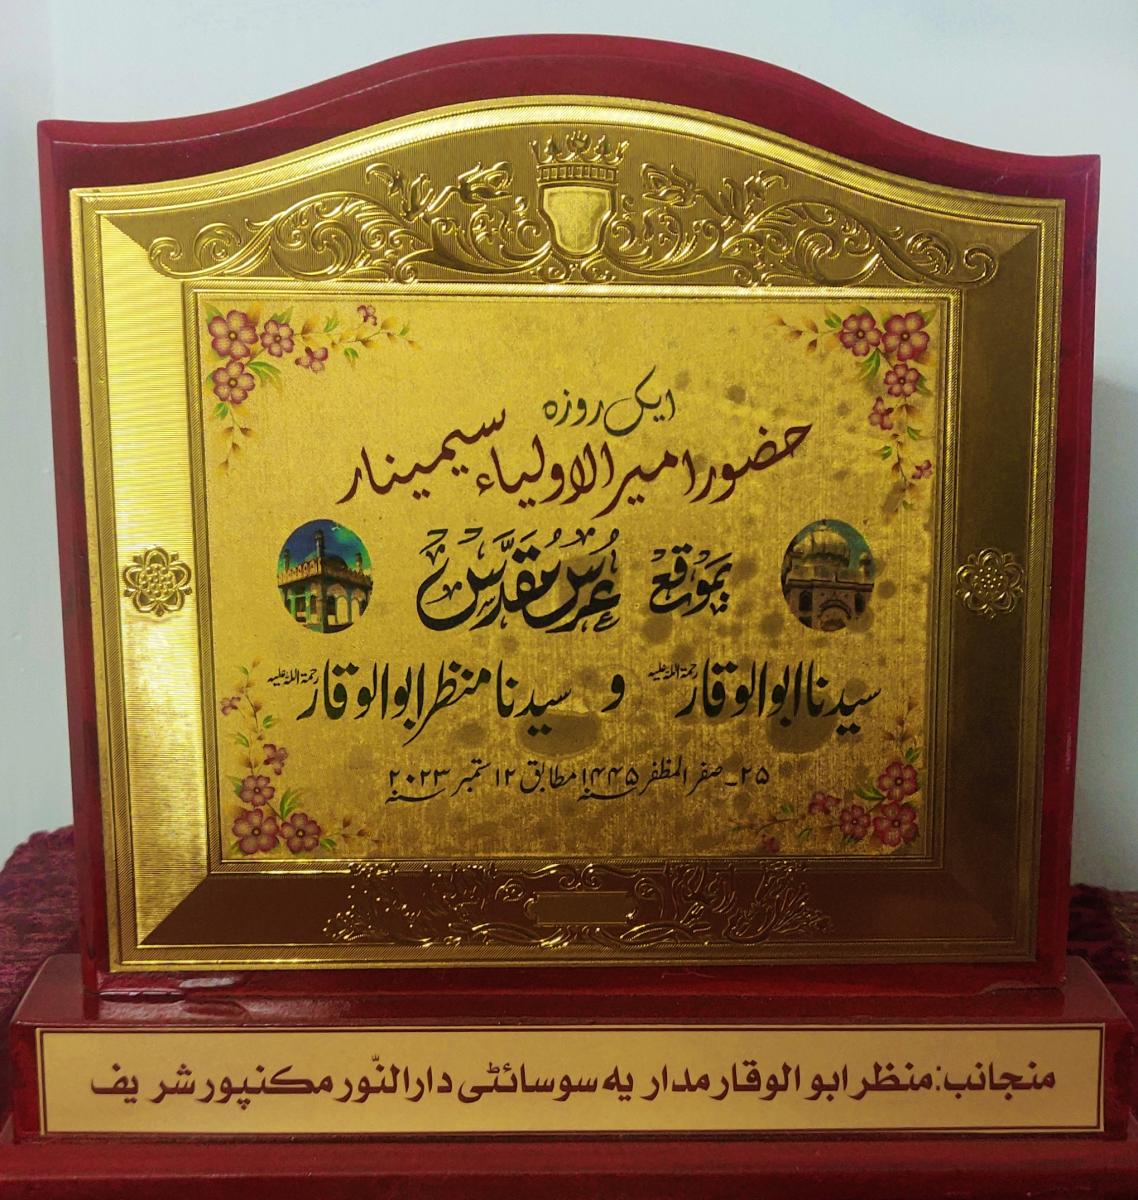 ایک روزہ
حضور امیر الاولیاء سیمینار
بموقع عُرس مُقدَّس
سیدنا ابوالوقار رحمۃ اللہ علیہ و سیدنا منظر ابوالوقار رحمۃ اللہ علیہ
۲۵۔ صفر المظفر ۱۴۴۵؁ مطابق ۱۲ ستمبر ۲۰۲۳؁
منجانب: منظر ابو الوقار مداریہ سوسائٹی دار النّور مکنپور شریف